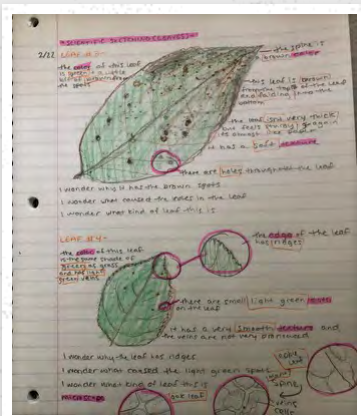 "SCIENTIFIC SKETCHING (LEAVES)"
2/22
LEAF #3
the color of this leaf
is green + a little
bit of brown from
the spots
the spine is
brown
this leaf is brown
from the top of the leaf
the leaf isn't very thick
but feels sturdy
it has a soft texture
there are holes throughout the leaf
I wonder why it has the brown spots
I wonder what caused the holes in the leaf
I wonder what kind of leaf this is
LEAF #4
the color of this leaf
is the same shade of
green as grass
and has light
green veins
the edge of the leaf
has ridges
there are small light green spots
on the leaf
it has a very smooth texture and
the veins are not very pronounced
I wonder why the leaf has ridges
I wonder what caused the light green spots
I wonder what kind of leaf this is
microscope
leaf
spine